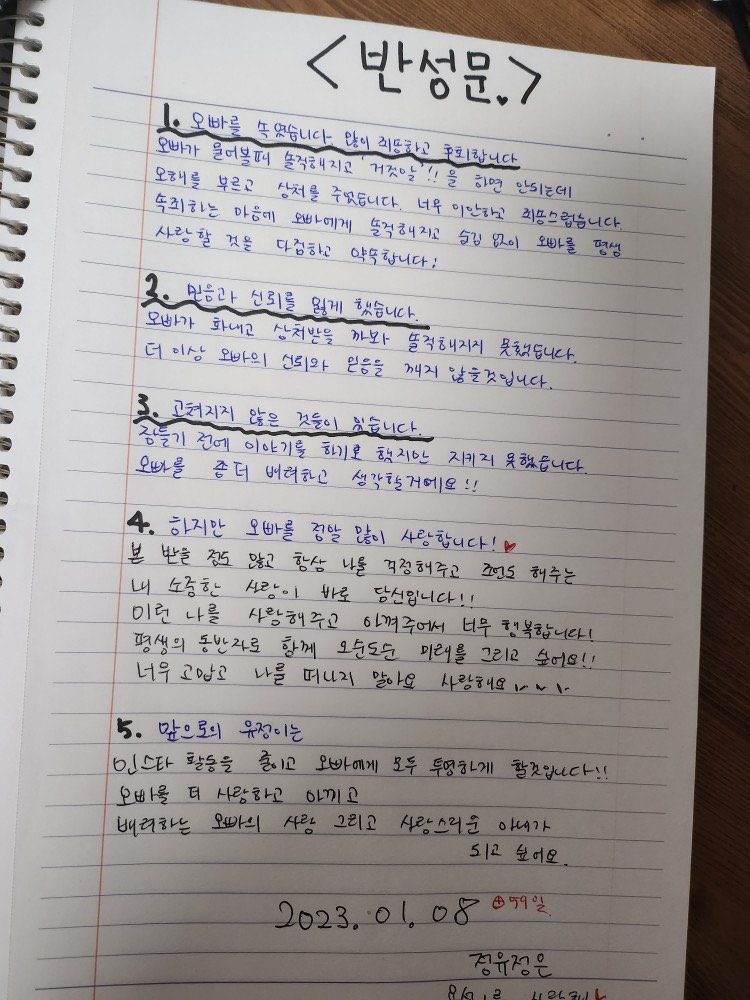 <반성문.>
1. 오빠를 속였습니다 많이 죄송하고 후회합니다
오빠가 물어볼때 솔직해지고 '거짓말'!! 을 하면 안되는데
오해를 부르고 상처를 주었습니다. 너무 미안하고 죄송스럽습니다.
속죄하는 마음에 오빠에게 솔직해지고 숨김 없이 오빠를 평생
사랑할 것을 다짐하고 약속합니다!
2. 믿음과 신뢰를 잃게 했습니다.
오빠가 화내고 상처받을 까봐 솔직해지지 못했습니다.
더 이상 오빠의 신뢰와 믿음을 깨지 않을것입니다.
3. 고쳐지지 않은 것들이 있습니다.
잠들기 전에 이야기를 하기로 했지만 지키지 못했습니다.
오빠를 좀 더 배려하고 생각할거에요!!
4. 하지만 오빠를 정말 많이 사랑합니다!
본 받을 점도 많고 항상 나를 걱정해주고 조언도 해주는
내 소중한 사랑이 바로 당신입니다!!
이런 나를 사랑해주고 아껴주어서 너무 행복합니다!
평생의 동반자로 함께 오순도순 미래를 그리고 싶어요!!
너무 고맙고 나를 떠나지 말아요 사랑해요
5. 앞으로의 유정이는
인스타 활동을 줄이고 오빠에게 모두 투명하게 할것입니다!!
오빠를 더 사랑하고 아끼고
배려하는 오빠의 사랑 그리고 사랑스러운 아내가
되고 싶어요.
2023. 01. 08 ⊕59일.
정유정은